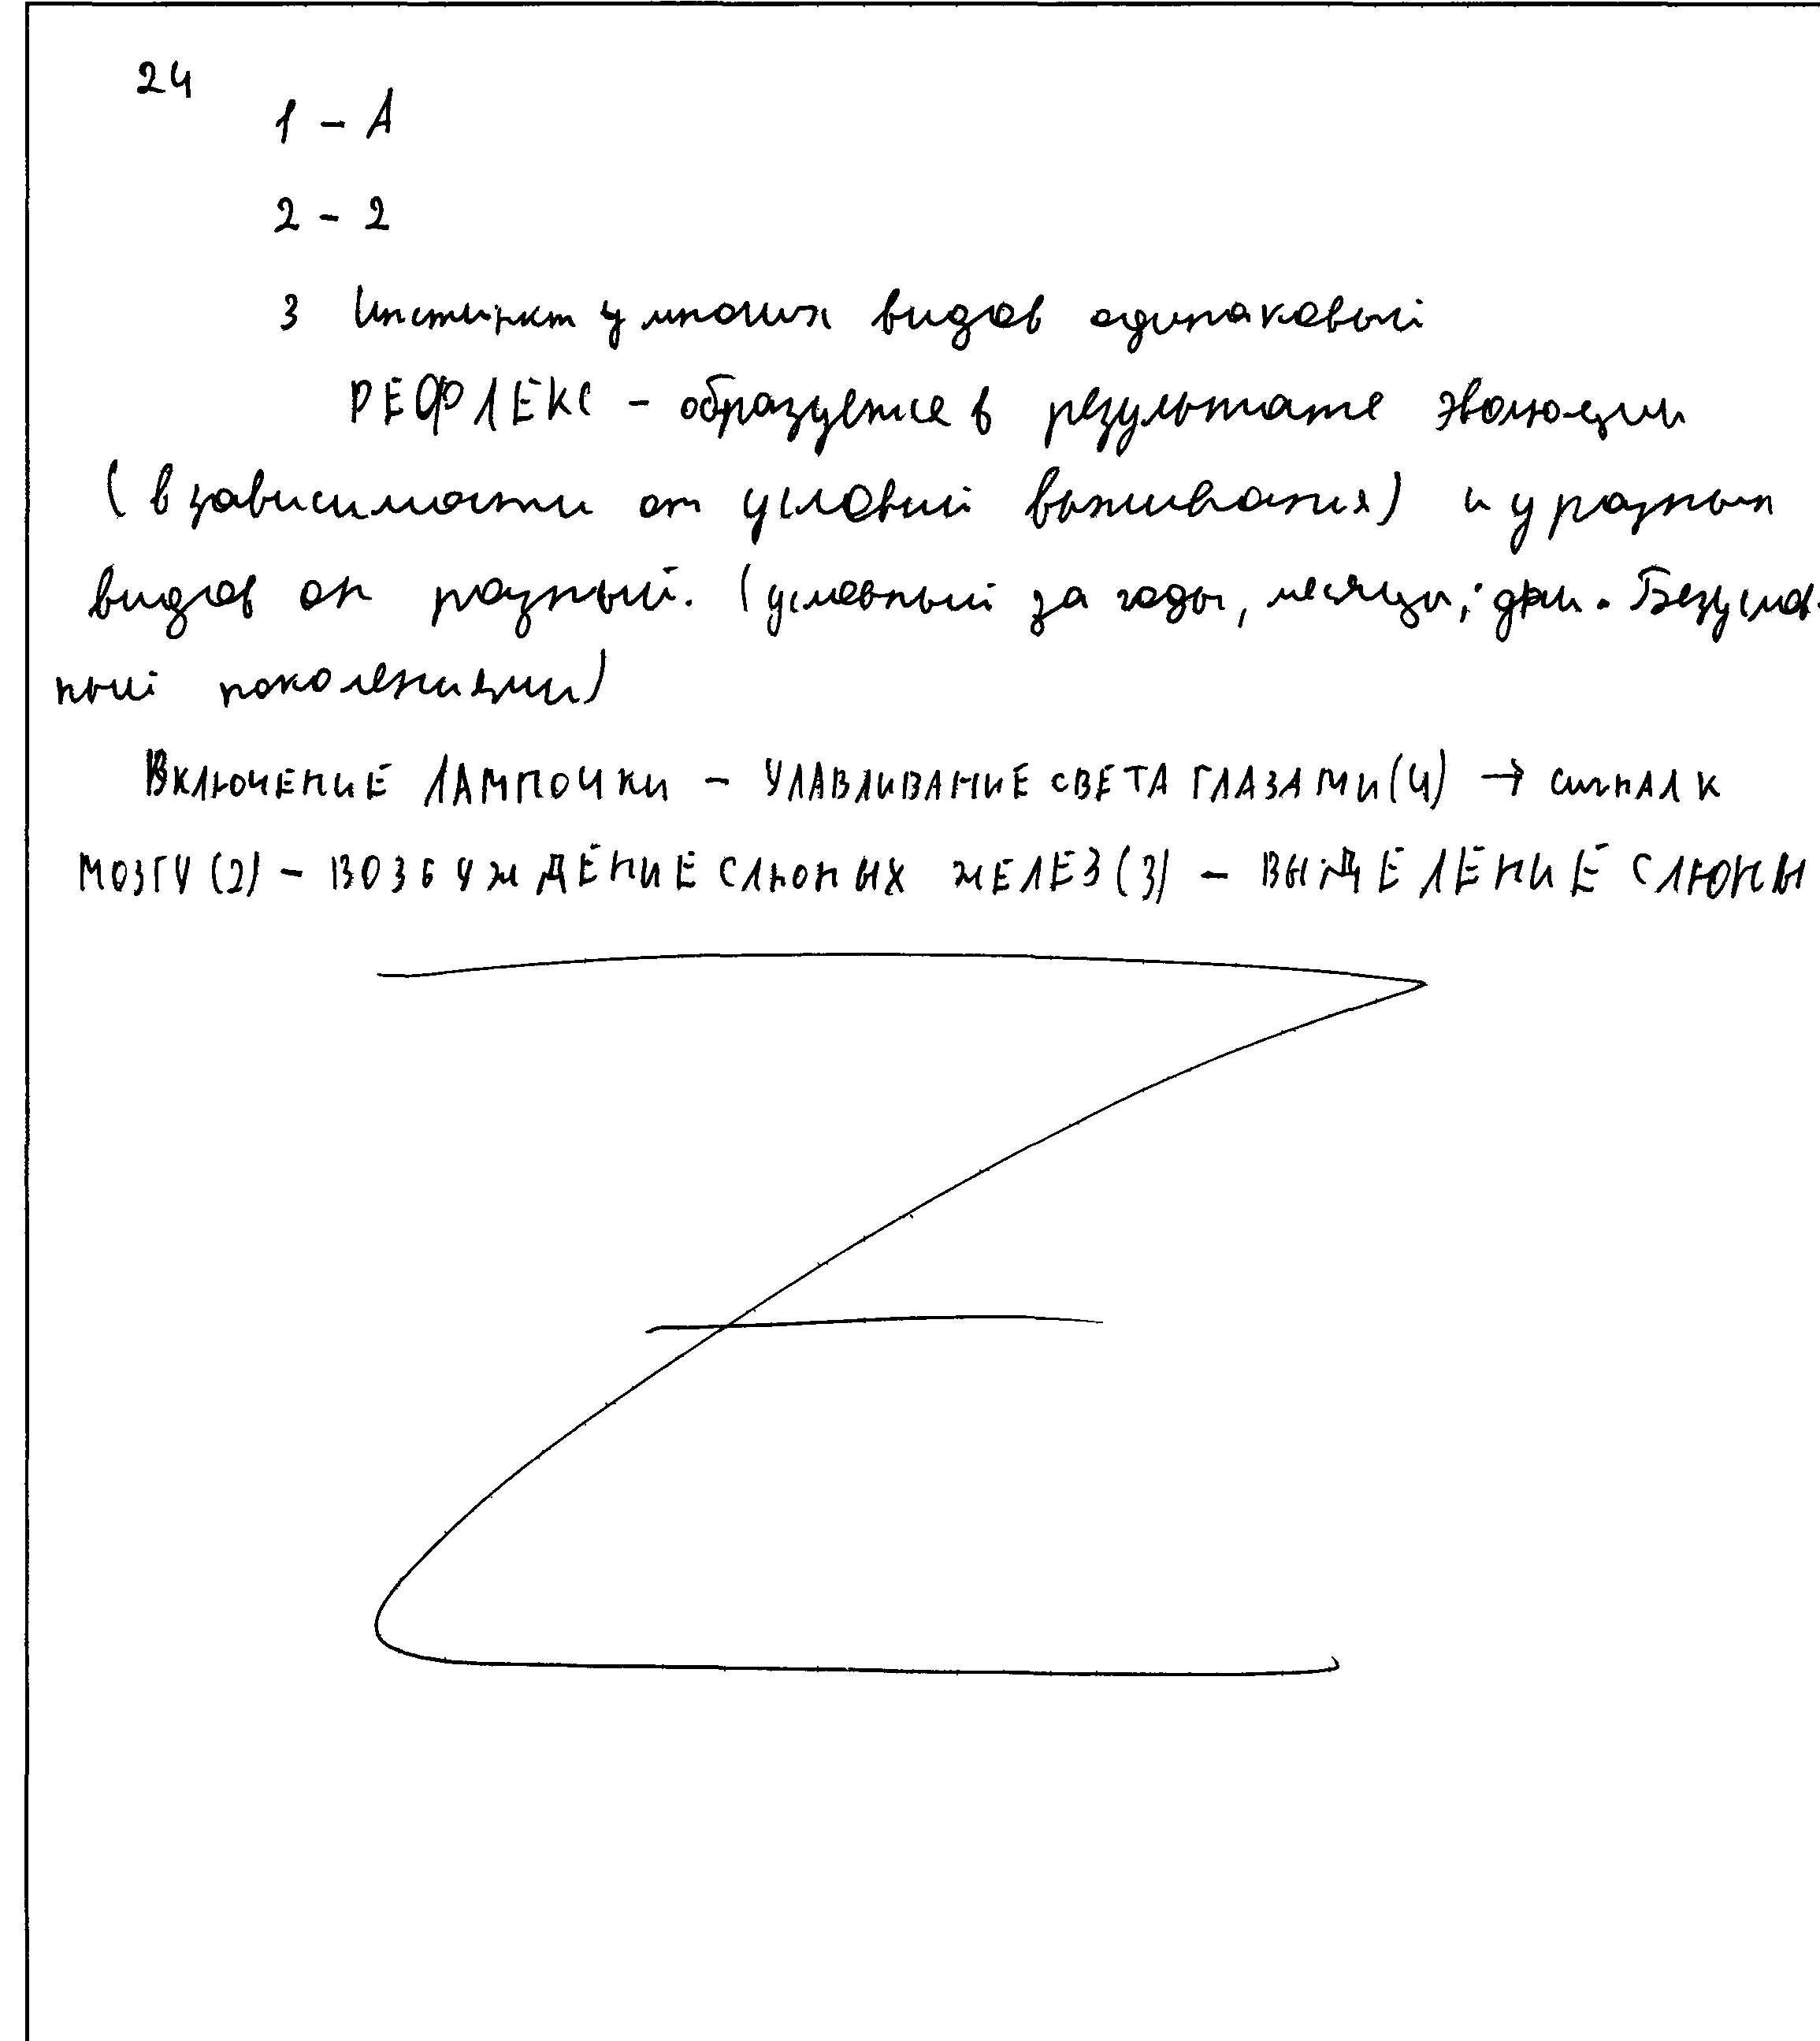 24
1 - А
2 - 2
3 Инстинкт у многих видов одинаковый
РЕФЛЕКС - образуется в результате эволюции
(в зависимости от условий выживания) и у разных
видов он разный. (условный за годы, месяцы, дни. Безуслов-
ный поколениями)
ВКЛЮЧЕНИЕ ЛАМПОЧКИ - УЛАВЛИВАНИЕ СВЕТА ГЛАЗАМИ(4) → сигнал к
МОЗГУ (2) - ВОЗБУЖДЕНИЕ СЛЮНЫХ ЖЕЛЕЗ(3) - ВЫДЕЛЕНИЕ СЛЮНЫ